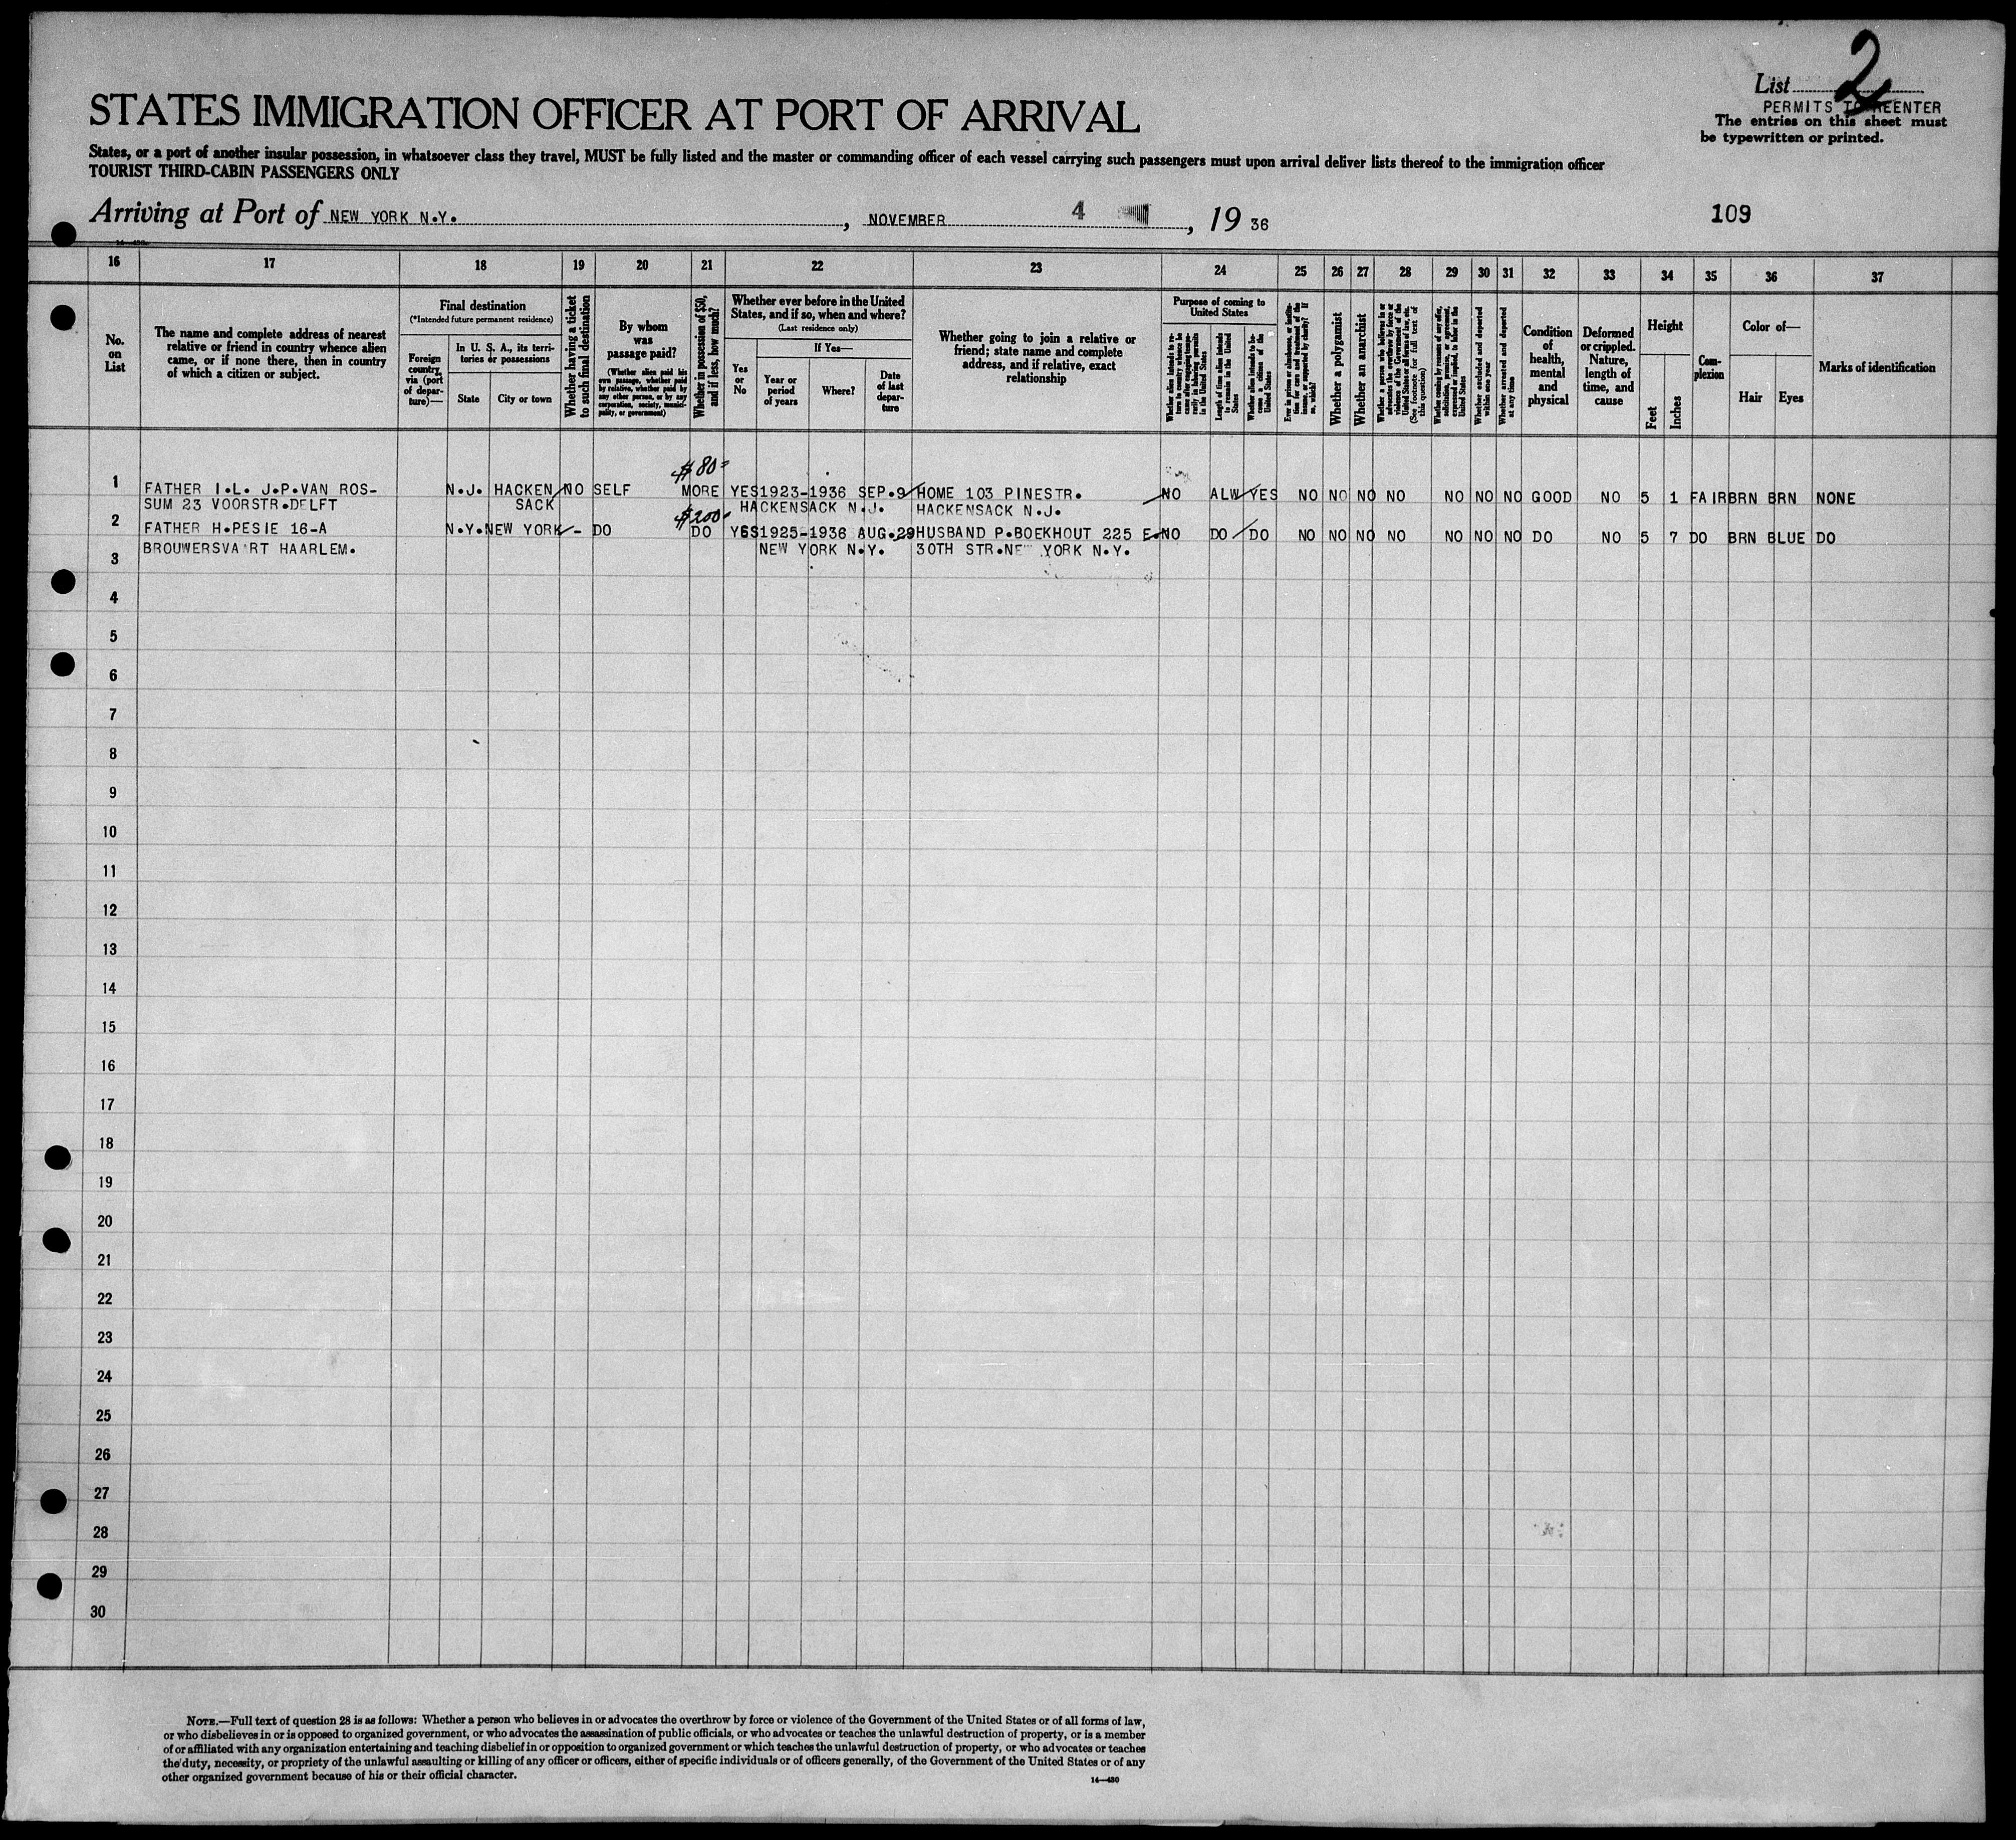 List 2
PERMITS TO REENTER
The entries on this sheet must
be typewritten or printed.
STATES IMMIGRATION OFFICER AT PORT OF ARRIVAL
States, or a port of another insular possession, in whatsoever class they travel, MUST be fully listed and the master or commanding officer of each vessel carrying such passengers must upon arrival deliver lists thereof to the immigration officer
TOURIST THIRD-CABIN PASSENGERS ONLY
Arriving at Port of NEW YORK N.Y. , NOVEMBER 4 , 19 36
109
16 17 18 19 20 21 22 23 24 25 26 27 28 29 30 31 32 33 34 35 36 37
No.
on
List
The name and complete address of nearest
relative or friend in country whence alien
came, or if none there, then in country
of which a citizen or subject.
Final destination
(*Intended future permanent residence)
Foreign
country,
via (port
of depar-
ture)—
In U. S. A., its terri-
tories or possessions
State
City or town
Whether having a ticket
to such final destination
By whom
was
passage paid?
(Whether alien paid his
own passage, whether paid
by relative, whether paid by
any other person, or by any
corporation, society, munici-
pality, or government)
Whether in possession of $50,
and if less, how much?
Whether ever before in the United
States, and if so, when and where?
(Last residence only)
Yes
or
No
If Yes—
Year or
period
of years
Where?
Date
of last
depar-
ture
Whether going to join a relative or
friend; state name and complete
address, and if relative, exact
relationship
Purpose of coming to
United States
Whether alien intends to re-
turn to country whence he
came after engaging tempo-
rarily in laboring pursuits
in the United States
Length of time alien intends
to remain in the United
States
Whether alien intends to be-
come a citizen of the
United States
Ever in prison or almshouse, or institu-
tion for care and treatment of the
insane, or supported by charity? If
so, which?
Whether a polygamist
Whether an anarchist
Whether a person who believes in or
advocates the overthrow by force or
violence of the Government of the
United States or all forms of law, etc.
(See footnote for full text of
this question)
Whether coming by reason of any offer,
solicitation, promise, or agreement,
expressed or implied, to labor in the
United States
Whether excluded and deported
within one year
Whether arrested and deported
at any time
Condition
of
health,
mental
and
physical
Deformed
or crippled.
Nature,
length of
time, and
cause
Height
Feet
Inches
Com-
plexion
Color of—
Hair
Eyes
Marks of identification
$80=
1 FATHER I.L. J.P.VAN ROS- N.J. HACKEN NO SELF MORE YES 1923-1936 SEP.9 HOME 103 PINESTR. NO ALW YES NO NO NO NO NO NO NO GOOD NO 5 1 FAIR BRN BRN NONE
SUM 23 VOORSTR.DELFT SACK HACKENSACK N.J. HACKENSACK N.J.
$200-
2 FATHER H.PESIE 16-A N.Y. NEW YORK - DO DO YES 1925-1936 AUG.29 HUSBAND P.BOEKHOUT 225 E. NO DO DO NO NO NO NO NO NO NO DO NO 5 7 DO BRN BLUE DO
BROUWERSVAART HAARLEM. NEW YORK N.Y. 30TH STR.NEW YORK N.Y.
3
4
5
6
7
8
9
10
11
12
13
14
15
16
17
18
19
20
21
22
23
24
25
26
27
28
29
30
NOTE.—Full text of question 28 is as follows: Whether a person who believes in or advocates the overthrow by force or violence of the Government of the United States or of all forms of law,
or who disbelieves in or is opposed to organized government, or who advocates the assassination of public officials, or who advocates or teaches the unlawful destruction of property, or is a member
of or affiliated with any organization entertaining and teaching disbelief in or opposition to organized government or which teaches the unlawful destruction of property, or who advocates or teaches
the duty, necessity, or propriety of the unlawful assaulting or killing of any officer or officers, either of specific individuals or of officers generally, of the Government of the United States or of any
other organized government because of his or their official character.
14—430